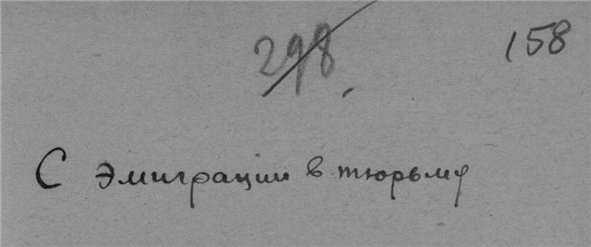 298
158
С эмиграции в тюрьму